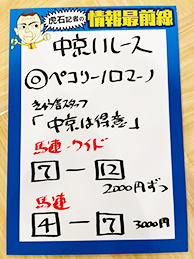 虎石記者の情報最前線
中京11レース
◎ペコリーノロマーノ
「中京は得意」
馬連・ワイド
7 ー 12
2000円ずつ
馬連
4 ー 7 3000円